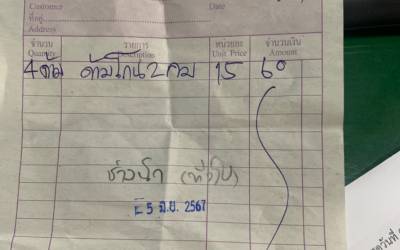 Customer Date
ที่อยู่
Address
จำนวน รายการ หน่วยละ จำนวนเงิน
Quantity Description Unit Price Amount
4 ด้าม ด้ามโกน 2 คม 15 60
ช่างน้ำ
- 5 มิ.ย. 2567